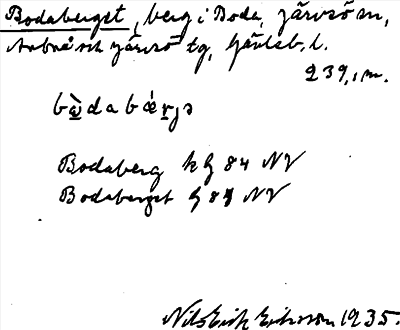 Bodaberget, berg i Boda, Järvsö sn,
Arbrå och Järvsö tg, Gävleb. l.
239,1 m.
bὼdabǽrjə
Bodaberg k G 84 NV
Bodaberget G 84 NV
Nils Erik Eriksson 1935.